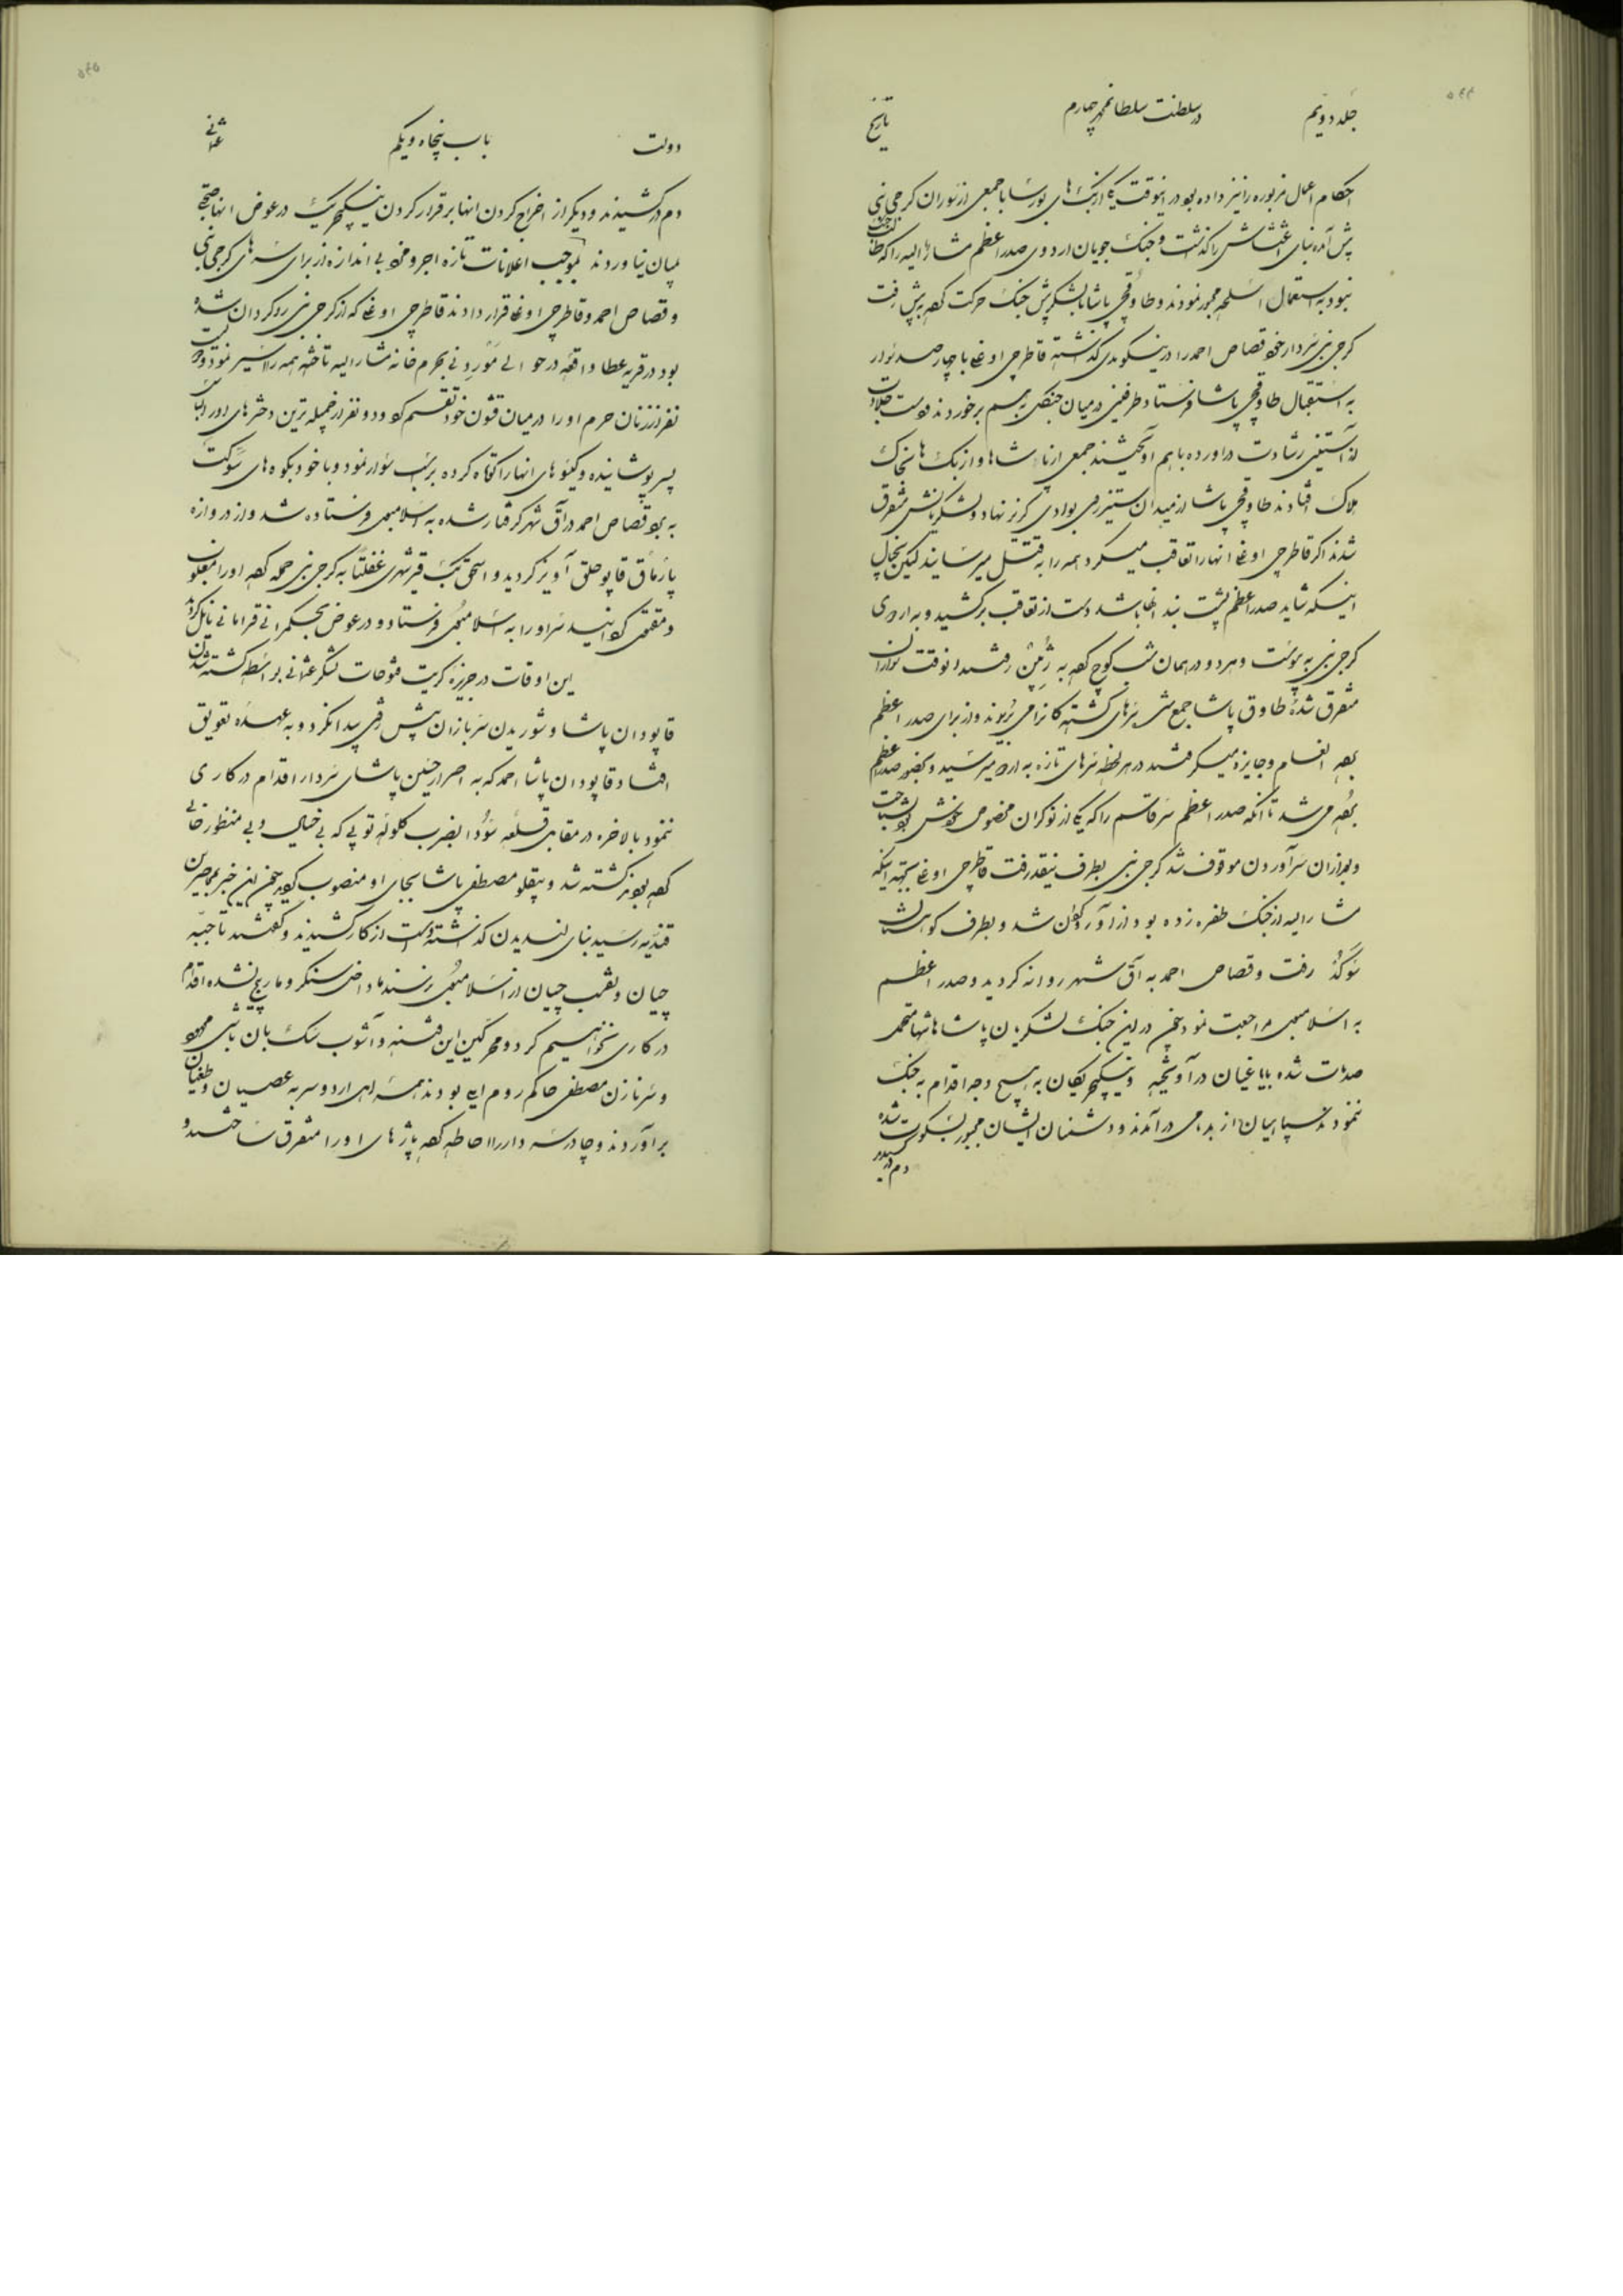 جلد دویم در سلطنت سلطان محمد چهارم تاریخ
احکام اعمال مزبوره را نیز داده بود در اینوقت یکی از بک های بورسا با جمعی از سواران کرجی نبی
پیش آمده بنای اغتشاش را گذاشت و جنک جویان اردوی صدر اعظم مشار الیه را که طالب جنگ
نبود به استعمال اسلحه مجبور نمودند و طاوقچی پاشا با لشکرش جنک حرکت کرده پیش رفت
کرجی نبی سردار خود قصاص احمد را در ینیکوی گذاشته قاطرجی اوغلی با چهار صد سوار
به استقبال طاوقچی پاشا فرستاد طرفین در میان جنگل بهم برخوردند دست جلادت
از آستین رشادت در اورده باهم اویختند جمعی از پاشاها و از بک ها بخاک
هلاک افتادند طاوقچی پاشا از میدان ستیز رمی بوادی گریز نهاد و لشکریانش متفرق
شدند اکر قاطرجی اوغلی انها را تعاقب میکرد همه را به قتل میرسانید لیکن بخیال
اینکه شاید صدر اعظم پشت بند انها باشد دست از تعاقب برکشید و به اردوی
کرجی نبی پیوست و هر دو در همان شب کوچ کرده به رفتند انوقت سواران
متفرق شده طاوق پاشا جمع شده سرهای کشته کانرا می بریدند و از برای صدر اعظم
برده انعام و جایزه میکرفتند در هر لحظه سرهای تازه به اردو میرسید و بحضور صدر اعظم
برده می شد تا آنکه صدر اعظم سر قاسم را که یکی از نوکران مخصوص خودش بود شناخت
و بعد از ان سر آوردن موقوف شد کرجی نبی بطرف نیقده رفت قاطرجی اوغلی بجهة اینکه
مشار الیه از جنک طفره زده بود از او رو کردان شد و بطرف کوهستان
سوکد رفت و قصاص احمد به آق شهر روانه کردید و صدر اعظم
به اسلامبول مراجعت نمود چون در این جنک لشکریان پاشاها تنها متحمل
صدمات شده با یاغیان در آویخته و ینیکچریکان به هیچ وجه اقدام به جنک
ننمودند سپاهیان از بدنامی در آمدند و دشمنان ایشان مجبور بسکوت شده
دم در کشیدند
دولت باب پنجاه و یکم عثمانی
دم در کشیدند و دیکر از اخراج کردن انها برقرار کردن ینیکچریک در عوض انها صحبتی
بمیان نیاوردند بموجب اعلانات تازه اجر و مزد بی اندازه از برای سرهای کرجی نبی
و قصاص احمد و قاطرجی اوغلی قرار دادند قاطرجی اوغلی که از کرجی نبی رو کردان شده
بود در قریه عطا واقعه در حوالی بحرم خانه مشار الیه تاخته همه را اسیر نمود
نفر از زنان حرم او را در میان قشون خود تقسیم کرد و دو نفر از جمیله ترین دخترهای او را لباس
پسر پوشانیده و گیسوهای انها را کوتاه کرده بر اسب سوار نمود و با خود بکوه های سوکت
برد قصاص احمد در آق شهر کرفتار شده به اسلامبول فرستاده شد و از دروازه
پارماق قاپو حلق آویز کردید و اسحق بیک قیرشهری غفلتا به کرجی نبی حمله کرده او را مغلوب
و مقتول کردانید سر او را به اسلامبول فرستاد و در عوض بحکمرانی قرامانی نایل گردید
این اوقات در جزیره کریت فتوحات لشکر عثمانی بواسطه کشته شدن
قاپودان پاشا و شوریدن سربازان پیش رفتی پیدا نکرد و به عهده تعویق
افتاد قاپودان پاشا احمد که به اصرار حسین پاشای سردار اقدام در کاری
ننمود بالاخره در مقابل قلعه سودا بضرب کلوله توپی که بی خیال و بی منظور خالی
کرده بودند کشته شد و بیقلو مصطفی پاشا بجای او منصوب کردید چون این خبر به محاصرین
قندیه رسید بنای لندیدن گذاشته دست از کار کشیدند و گفتند تا جبه
چیان و نقب چیان از اسلامبول نرسند ما داخل سنکر و مارپیچ نشده اقدام
در کاری نخواهیم کرد و محرکین این فتنه و آشوب سک بان باشی محمود
و سرنازن مصطفی حاکم روم ایلی بودند همه اهل اردو سر به عصیان و طغیان
برآوردند و چادر سردار را احاطه کرده پارچه های او را متفرق ساختند و